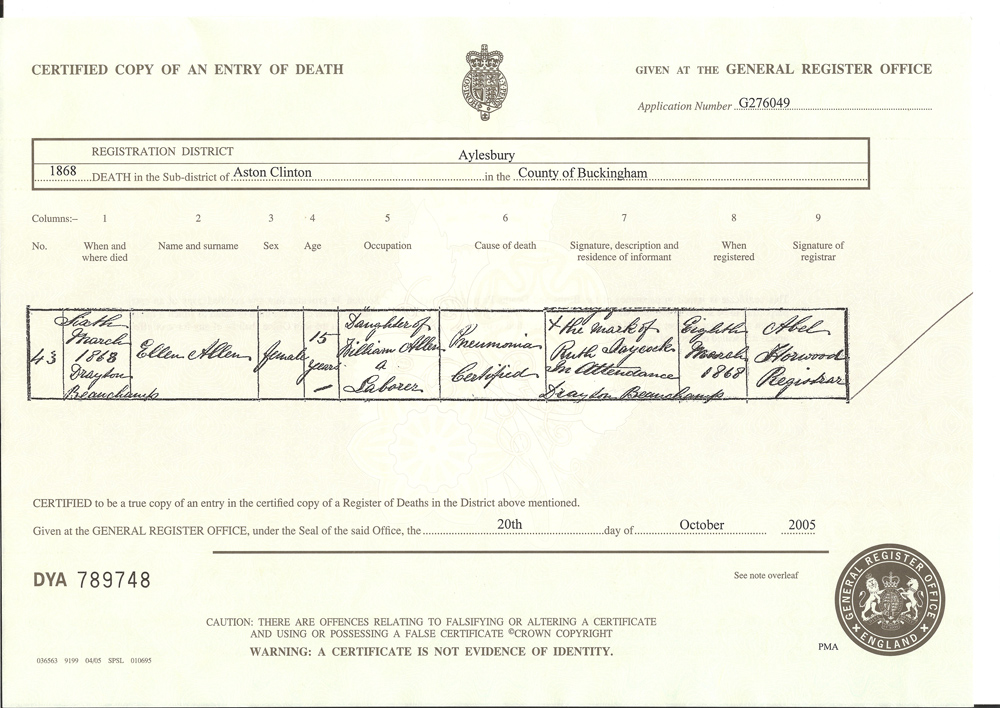 CERTIFIED COPY OF AN ENTRY OF DEATH
GIVEN AT THE GENERAL REGISTER OFFICE
Application Number G276049
REGISTRATION DISTRICT Aylesbury
1868 DEATH in the Sub-district of Aston Clinton in the County of Buckingham
Columns:– 1 2 3 4 5 6 7 8 9
No. When and where died Name and surname Sex Age Occupation Cause of death Signature, description and residence of informant When registered Signature of registrar
43
Sixth
March
1868
Drayton
Beauchamp
Ellen Allen
female
15
years
Daughter of
William Allen
a
Laborer
Pneumonia
Certified
X the mark of
Ruth Jaycock
In Attendance
Drayton Beauchamp
Eighth
March
1868
Abel
Horwood
Registrar
CERTIFIED to be a true copy of an entry in the certified copy of a Register of Deaths in the District above mentioned.
Given at the GENERAL REGISTER OFFICE, under the Seal of the said Office, the 20th day of October 2005
DYA 789748
See note overleaf
CAUTION: THERE ARE OFFENCES RELATING TO FALSIFYING OR ALTERING A CERTIFICATE
AND USING OR POSSESSING A FALSE CERTIFICATE ©CROWN COPYRIGHT
WARNING: A CERTIFICATE IS NOT EVIDENCE OF IDENTITY.
GENERAL REGISTER OFFICE
ENGLAND
PMA
036563 9199 04/05 SPSL 010695